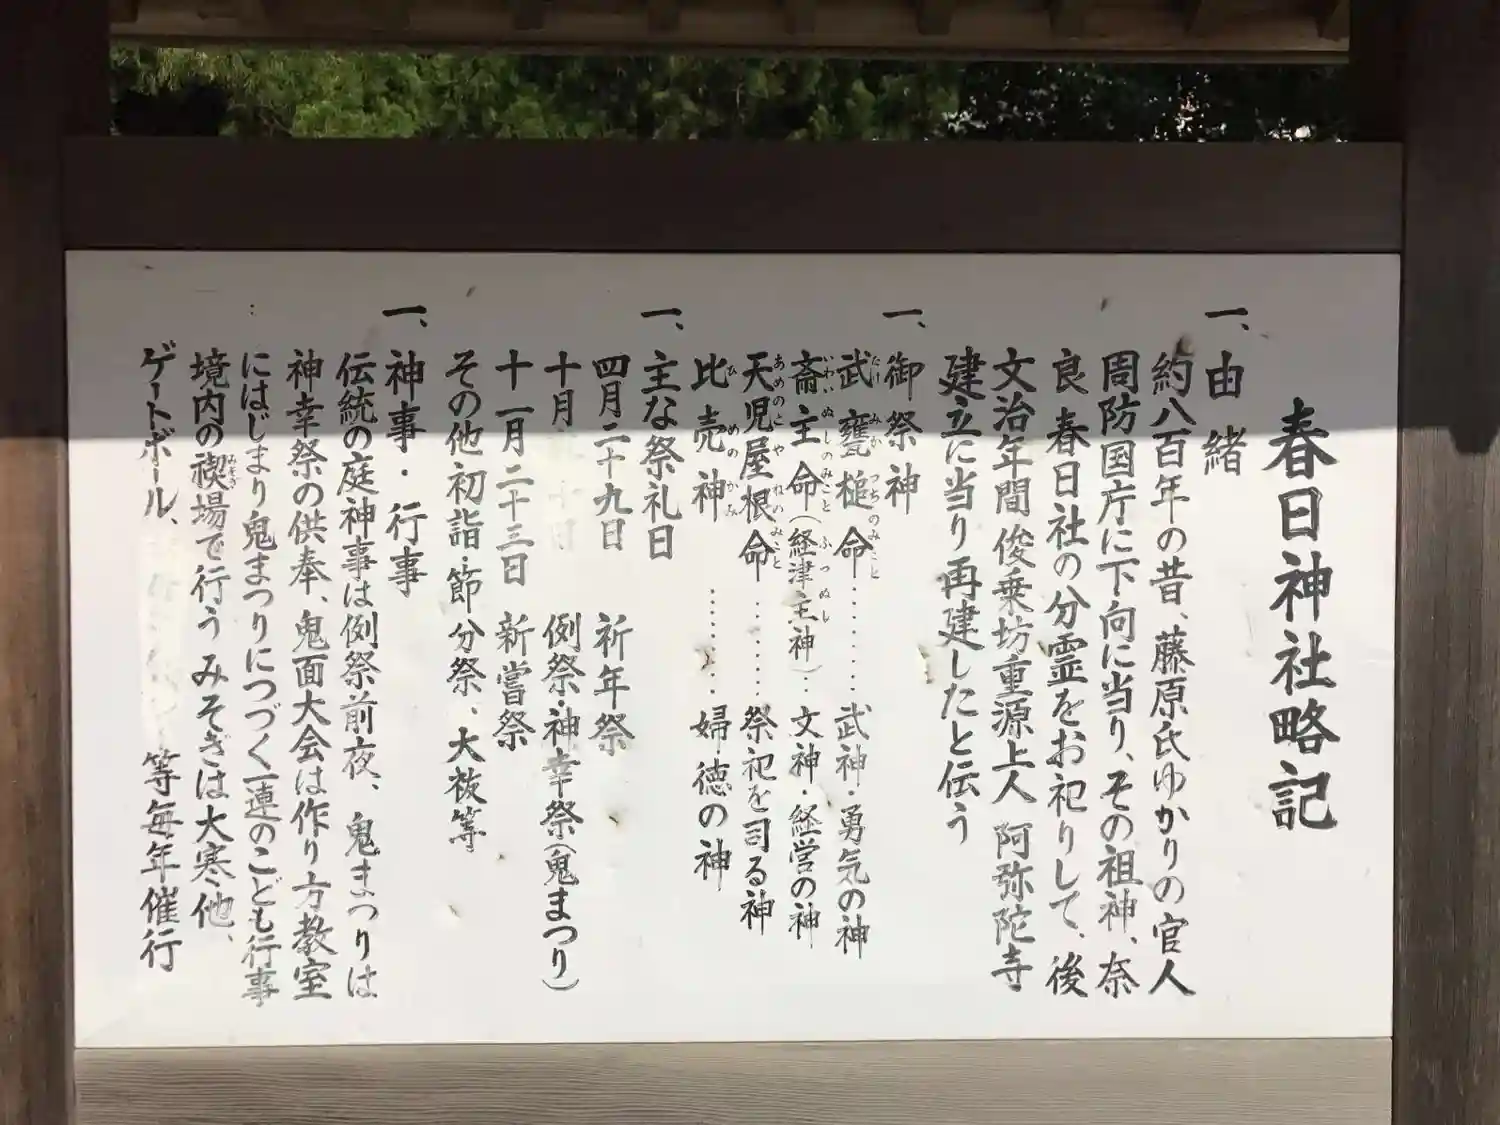 春日神社略記
一、由緒
約八百年の昔、藤原氏ゆかりの官人
周防国庁に下向に当り、その祖神、奈
良春日社の分霊をお祀りして、後
文治年間俊乗坊重源上人阿弥陀寺
建立に当り再建したと伝う
一、御祭神
武甕槌命………武神・勇気の神
斎主命(経津主神)‥文神・経営の神
天児屋根命………祭祀を司る神
比売神………婦徳の神
一、主な祭礼日
四月二十九日 祈年祭
十月 例祭・神幸祭(鬼まつり)
十一月二十三日 新嘗祭
その他初詣・節分祭、大祓等
一、神事・行事
伝統の庭神事は例祭前夜、鬼まつりは
神幸祭の供奉、鬼面大会は作り方教室
にはじまり鬼まつりにつづく一連のこども行事
境内の禊場で行うみそぎは大寒、他、
ゲートボール、 等毎年催行